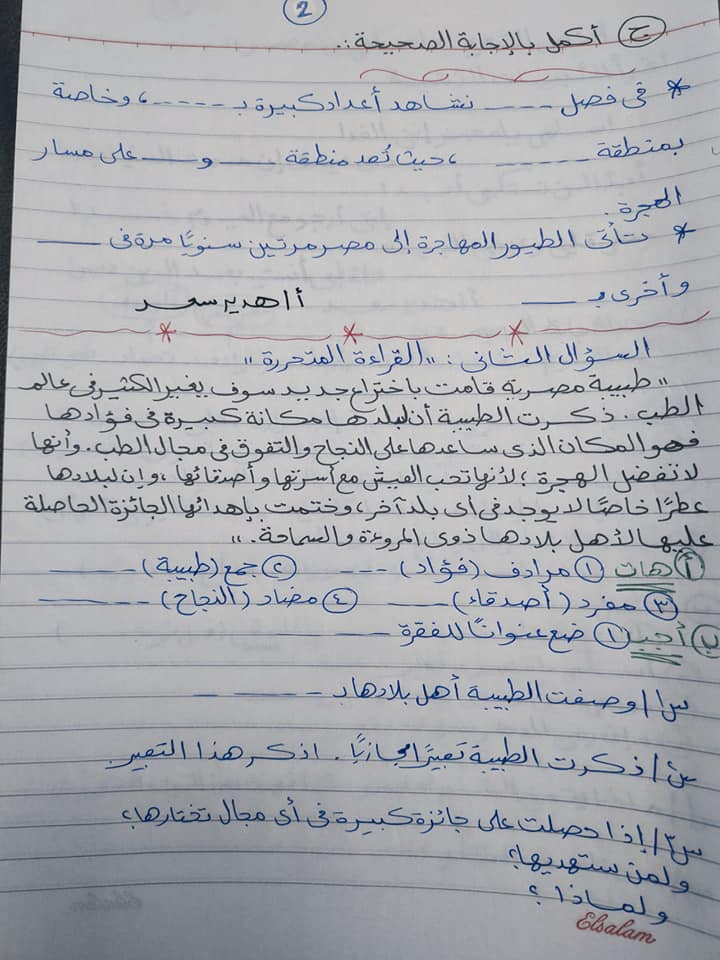 2
ج) أكمل بالإجابة الصحيحة :.
* فى فصل ---- نشاهد أعداد كبيرة بـ ----- ، وخاصة
بمنطقة ------ ، حيث تُعد منطقة ـــــ و ـــــ على مسار
الهجرة .
* تأتى الطيور المهاجرة إلى مصر مرتين سنويًا مرة فى ـــــ
وأخرى بـ ـــــ أ/ هدير سعد
السؤال الثانى : " القراءة المتحررة "
" طبيبة مصرية قامت باختراع جديد سوف يغير الكثير فى عالم
الطب . ذكرت الطبيبة أن لبلدها مكانة كبيرة فى فؤادها
فهو المكان الذى ساعدها على النجاح والتفوق فى مجال الطب . وأنها
لا تفضل الهجرة ؛ لأنها تحب العيش مع أسرتها وأصدقائها ، وإن لبلادها
عطرًا خاصًا لا يوجد فى أى بلد آخر ، وختمت بإهدائها الجائزة الحاصلة
عليها لأهل بلادها ذوى المروءة والسماحة . "
أ) هات ١) مرادف (فؤاد) --- ٢) جمع (طبيبة) -----
٣) مفرد (أصدقاء) ---- ٤) مضاد (النجاح) ------
ب) أجب ١) ضع عنوانًا للفقرة ------
س١/ وصفت الطبيبة أهل بلادها بـ ------
س٢/ ذكرت الطبيبة تعبيرًا مجازيًا . اذكر هذا التعبير
س٣/ إذا حصلت على جائزة كبيرة فى أى مجال تختارها ؟
ولمن ستهديها ؟
ولماذا ؟
Elsalam